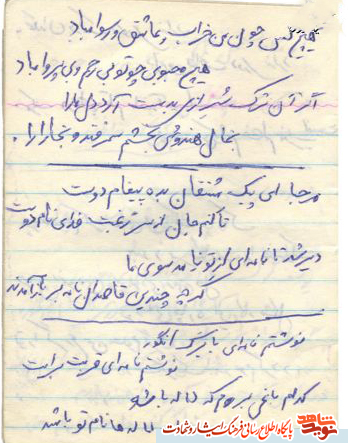 هیچ کس چون من خراب و عاشق و رسوا مباد
هیچ محبوبی چو تو بی رحم و بی پروا مباد
اگر آن ترک شیرازی بدست آرد دل ما را
بخال هندوش بخشم سمرقند و بخارا را.
مرحبا ای پیک مشتقان بده پیغام دوست
تا کنم جان از سر رغبت فدای نام دوست
دیر شد تا نامه‌ای از تو نیامد سوی ما
گر چه چندین قاصدان نامه بر باز آمدند
نوشتم نامه‌ای با برگ انگور
نوشتم نامه‌ای قربت برایت
کدام باغی بروم که لاله باشد
لاله ها نام تو باشد
نوید شاهد
پایگاه اطلاع رسانی فرهنگ ایثار و شهادت
www.navideshahed.com